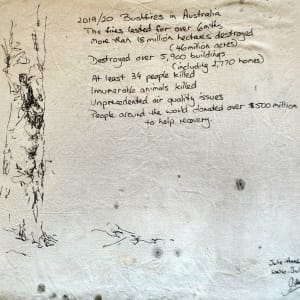 2019/20 Bushfires in Australia
The fires lasted for over 6mths
More than 18 million hectares destroyed
(46million acres)
Destroyed over 5,900 buildings
(including 2,770 homes)
At least 34 people killed
Innumerable animals killed
Unprecedented air quality issues
People around the world donated over $500 million
to help recovery.